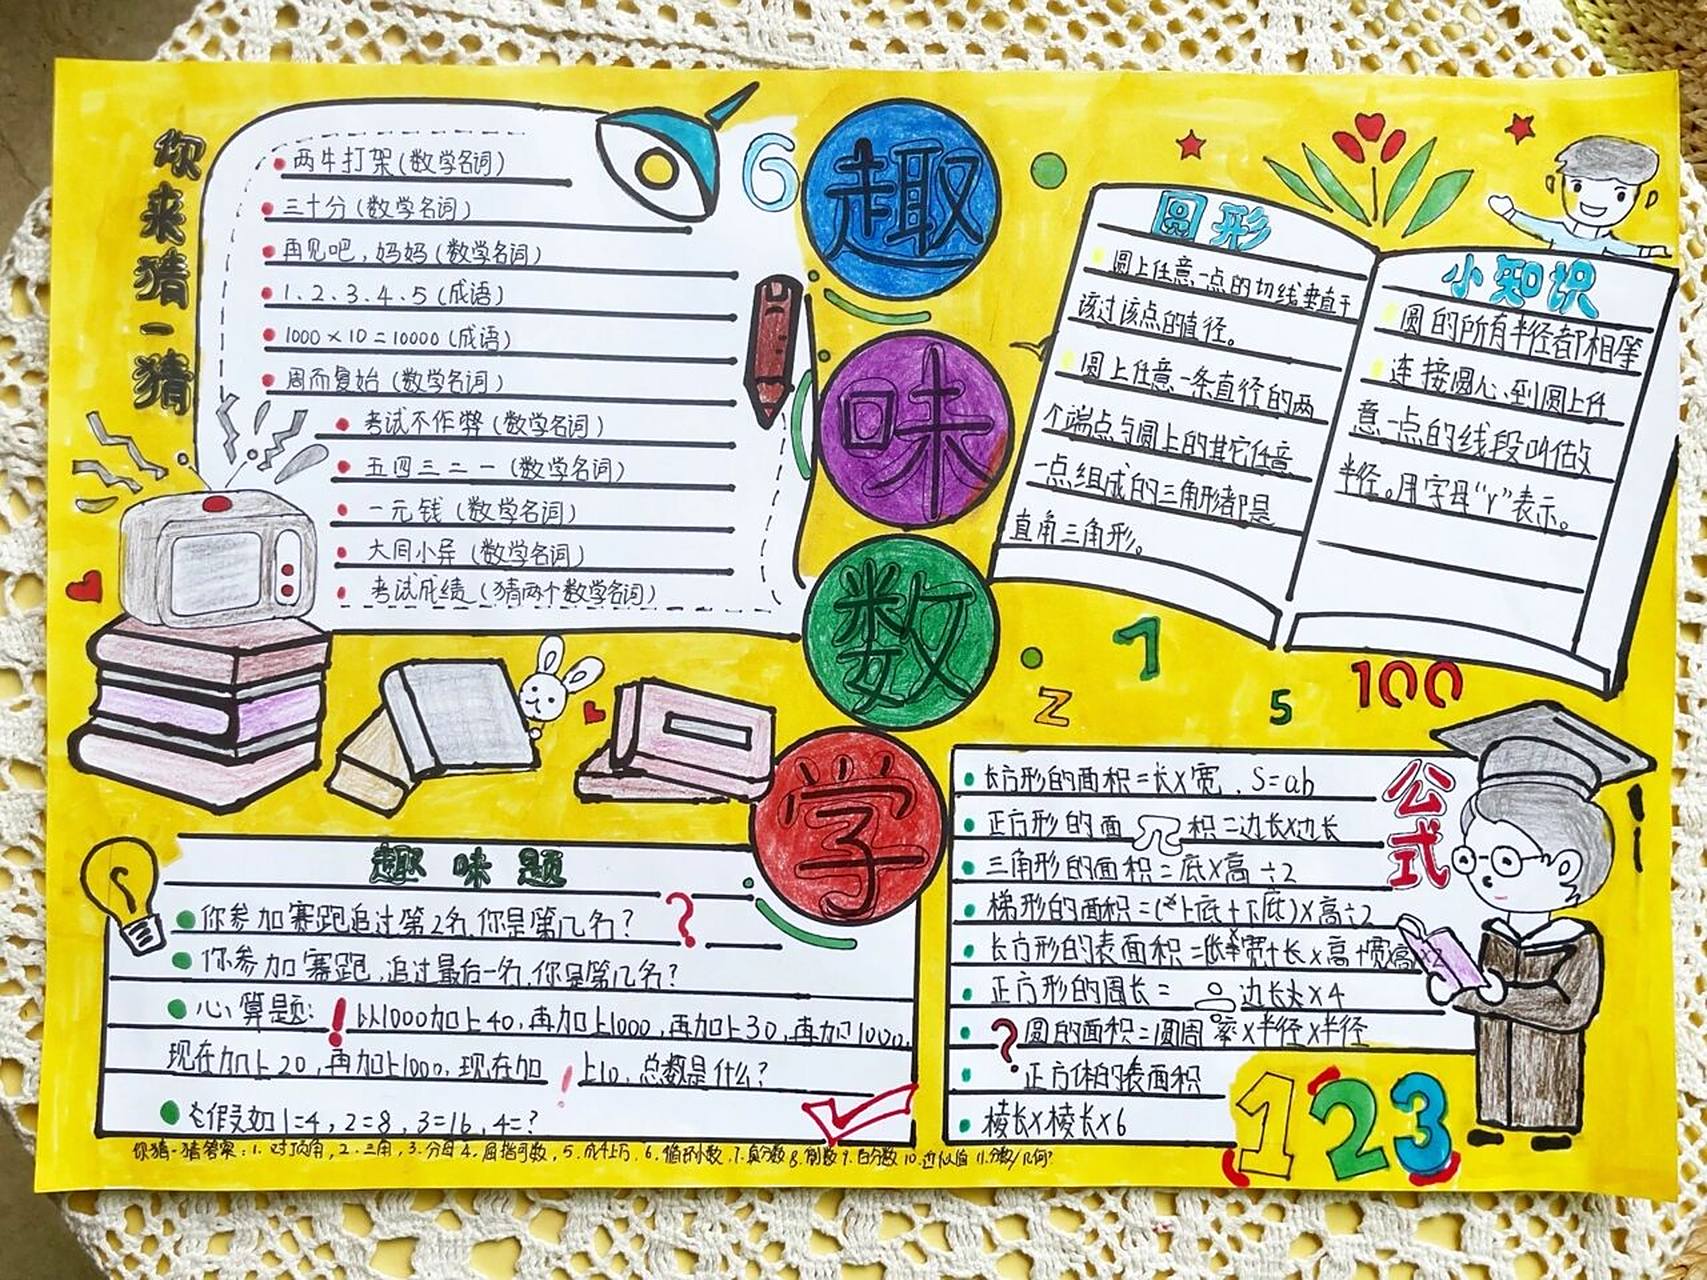 你来猜一猜
两牛打架(数学名词)
三十分(数学名词)
再见吧,妈妈(数学名词)
1.2.3.4.5(成语)
1000×10=10000(成语)
周而复始(数学名词)
考试不作弊(数学名词)
五四三二一(数学名词)
一元钱(数学名词)
大同小异(数学名词)
考试成绩(猜两个数学名词)
6
趣
味
数
学
圆形
圆上任意一点的切线垂直于
该过该点的直径。
圆上任意一条直径的两
个端点与圆上的其它任意
一点组成的三角形都是
直角三角形。
小知识
圆的所有半径都相等
连接圆心、到圆上任
意一点的线段叫做
半径。用字母“r”表示。
2
7
5
100
趣味题
你参加赛跑追过第2名,你是第几名?
你参加赛跑,追过最后一名,你是第几名?
心算题:以1000加上40,再加上1000,再加上30,再加1000,
现在加上20,再加上1000,现在加上10,总数是什么?
假如1=4,2=8,3=16,4=?
你猜一猜答案:1.对顶角,2.三角,3.分母4.屈指可数,5.成千上万,6.循环小数,7.真分数8.倒数9.百分数10.近似值11.分数/几何?
公式
长方形的面积=长×宽.S=ab
正方形的面积=边长×边长
三角形的面积=底×高÷2
梯形的面积=(上底+下底)×高÷2
长方形的表面积=
宽+长×高+宽×高
正方形的周长=
边长×4
圆的面积=圆周率×半径×半径
正方体的表面积
棱长×棱长×6
123